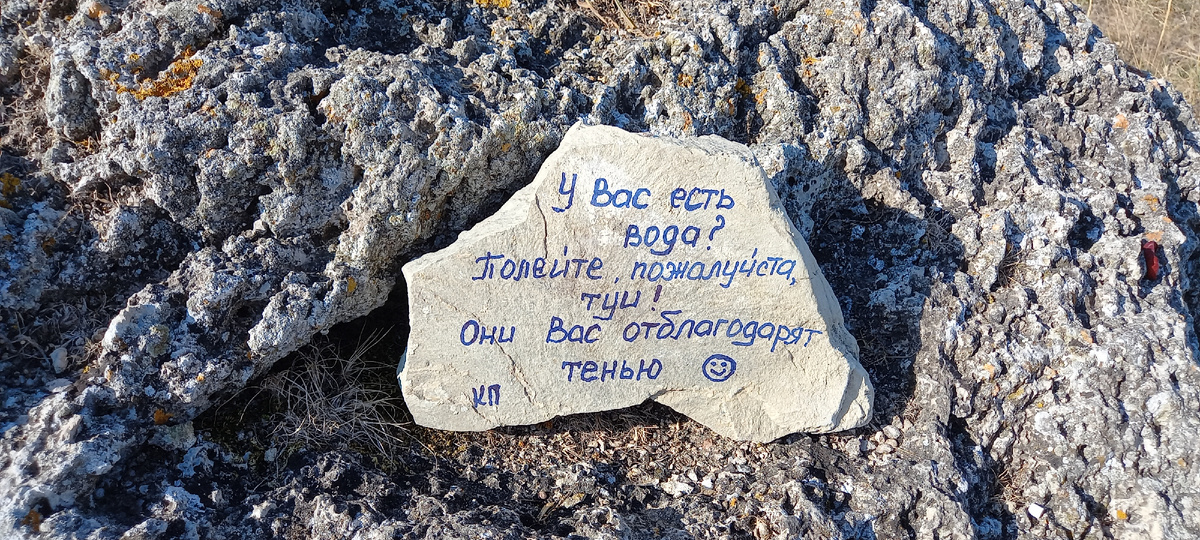 У Вас есть
вода?
Полейте, пожалуйста,
туи!
Они Вас отблагодарят
тенью ☺
КП